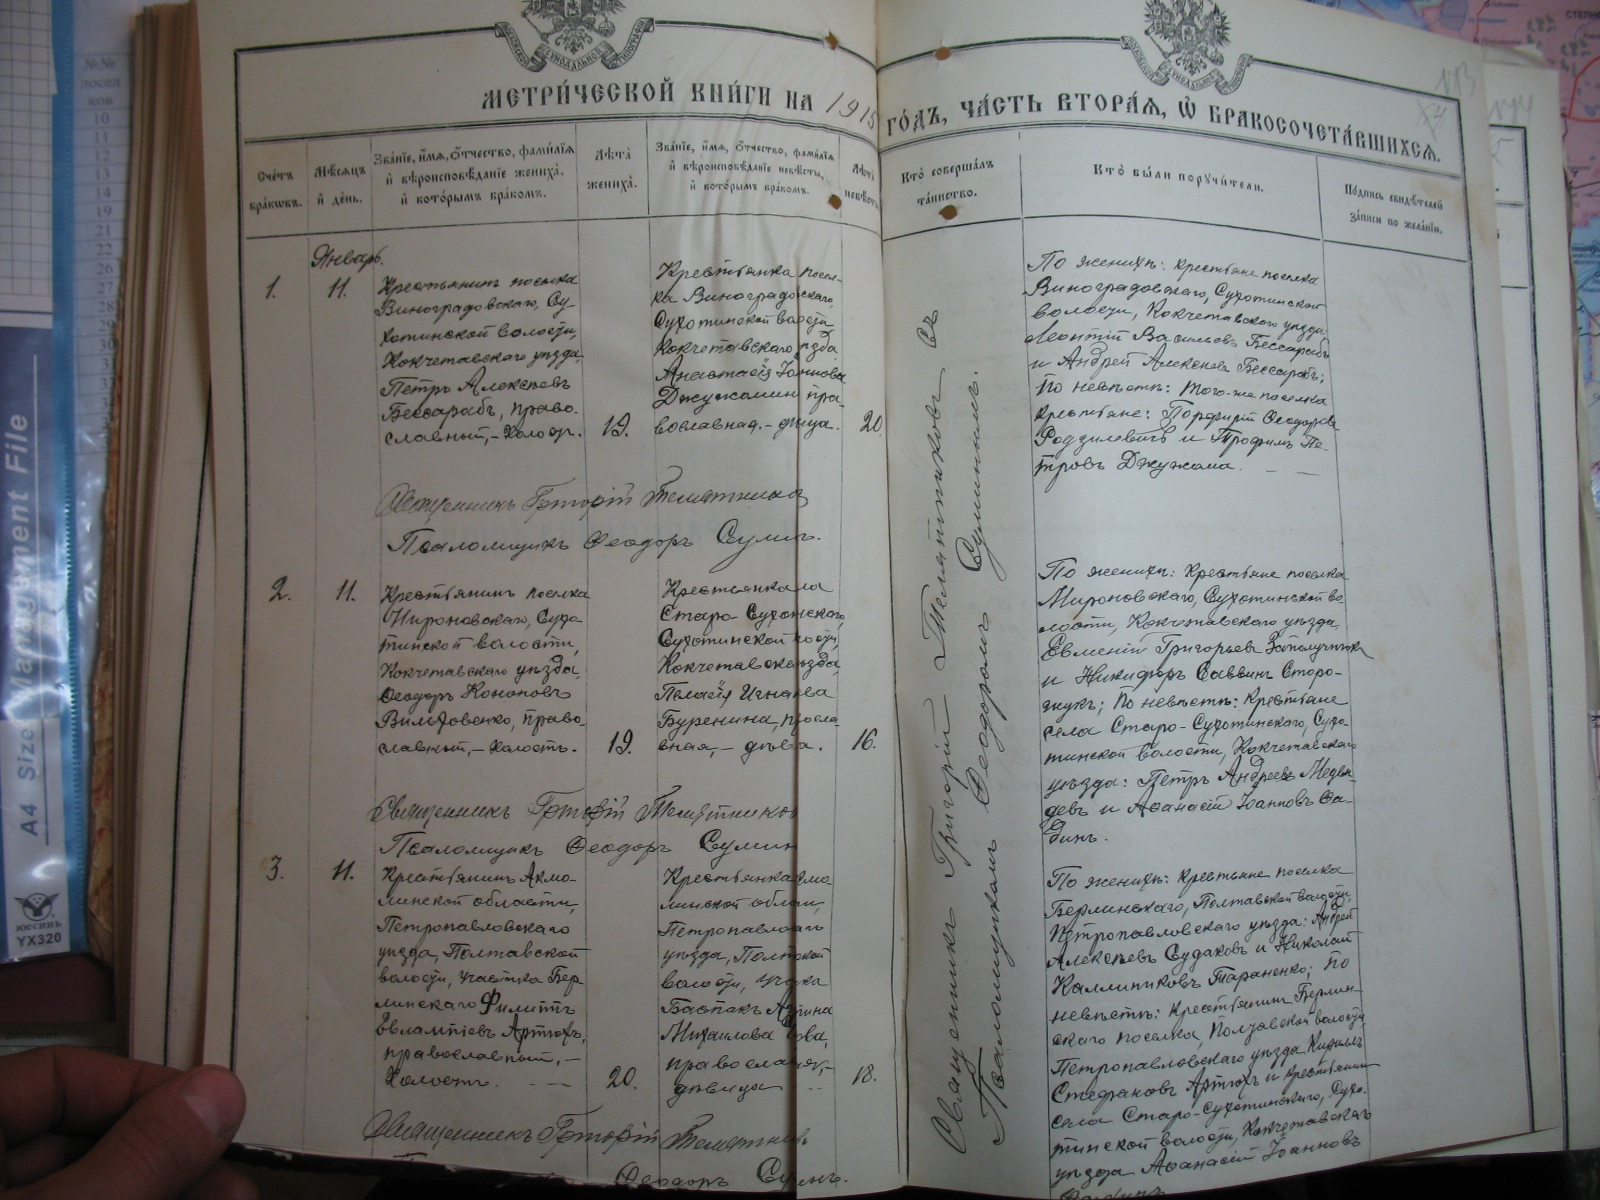 МЕТРИ́ЧЕСКОЙ КНИ́ГИ НА 1915 ГО́ДЪ, ЧА́СТЬ ВТОРА́Я, Ѽ БРАКОСОЧЕТА́ВШИХСЯ.
Сче́тъ бра́ковъ.
Мѣ́сяцъ и́ де́нь.
Зва́нїе, и́мя, ѻ́тчество, фами́лїя и́ вѣроисповѣ́данїе жениха̀, и́ кото́рымъ бра́комъ.
Лѣ́та̀ жениха̀.
Зва́нїе, и́мя, ѻ́тчество, фами́лїя и́ вѣроисповѣ́данїе невѣ́сты, и́ кото́рымъ бра́комъ.
Лѣ́та̀ невѣ́сты
Кто̀ соверша́лъ та́инство.
Кто̀ бы́ли порꙋчи́тели.
По́дпись свидѣ́телей за́писи по жела́нїю.
Январь.
1.
11.
Крестьянинъ поселка
Виноградовскаго, Су-
хотинской волости,
Кокчетавскаго уѣзда,
Петръ Алексѣевъ
Бессарабъ, право-
славный, – холост.
19.
Крестьянка посел-
ка Виноградовскаго,
Сухотинской волости
Кокчетавскаго уѣзда
Анастасія Іоаннова
Джужомин пра-
вославная. – дѣвица.
20.
По женихѣ: крестьяне поселка
Виноградовскаго, Сухотинской
волости, Кокчетавскаго уѣзда:
Леонтій Васильевъ Бессарабъ
и Андрей Алексѣевъ Бессарабъ;
по невѣстѣ: того-же поселка
крестьяне: Порфирій Ѳеодоровъ
и Трофимъ Пе-
тровъ Джужома.
Священникъ Григорій Темятников
Псаломщикъ Ѳеодоръ Сулинъ.
2.
11.
Крестьянинъ поселка
Мироновскаго, Сухо-
тинской волости,
Кокчетавскаго уѣзда,
Ѳеодоръ Кононовъ
Вильховенко, право-
славный, – холостъ.
19.
Крестьянка села
Старо-Сухотинскаго
Сухотинской волости,
Кокчетавск уѣзда,
Пелагія Игнатева
Буренина, правосла-
вная, – дѣва.
16.
По женихѣ: крестьяне поселка
Мироновскаго, Сухотинской во-
лости, Кокчетавскаго уѣзда,
Евменій Григорьевъ
и Никифоръ Саввинъ Сторо-
жукъ; по невѣстѣ: крестьяне
села Старо-Сухотинскаго, Сухо-
тинской волости, Кокчетавскаго
уѣзда: Петръ Андреевъ Медвѣ-
девъ и Аѳанасій Іоанновъ Ѳа-
динъ.
Священникъ Григорій Темятников
Псаломщикъ Ѳеодоръ Сулин
3.
11.
Крестьянинъ Акмо-
линской области,
Петропавловскаго
уѣзда, Полтавской
волости, участка Бер-
линскаго Филиппъ
Евлампіевъ Артюхъ,
православный, –
холостъ.
20.
Крестьянка Акмо-
линской области,
Петропавловскаго
уѣзда, Полтавской
волости, участка
Михаилова
православная, –
дѣвица
18.
По женихѣ: крестьяне поселка
Берлинскаго, Полтавской волости,
Петропавловскаго уѣзда: Андрей
Алексѣевъ Судаковъ и Николай
Каллиниковъ Тараненко; по
невѣстѣ: крестьянинъ Берлин-
скаго поселка, Полтавской волости,
Петропавловскаго уѣзда
Стефановъ Артюхъ и крестьянин
села Старо-Сухотинскаго, Сухо-
тинской волости, Кокчетавскаго
уѣзда Аѳанасій Іоанновъ
Священникъ Григорій Темятников
Ѳеодоръ Сулинъ.
Священникъ Григорій Темятниковъ съ
Псаломщикомъ Ѳеодоромъ Сулинымъ.
A4 Size Management File
YX320
№№
посел
ков
10
11
12
13
14
19
21
22
26
27
28
29